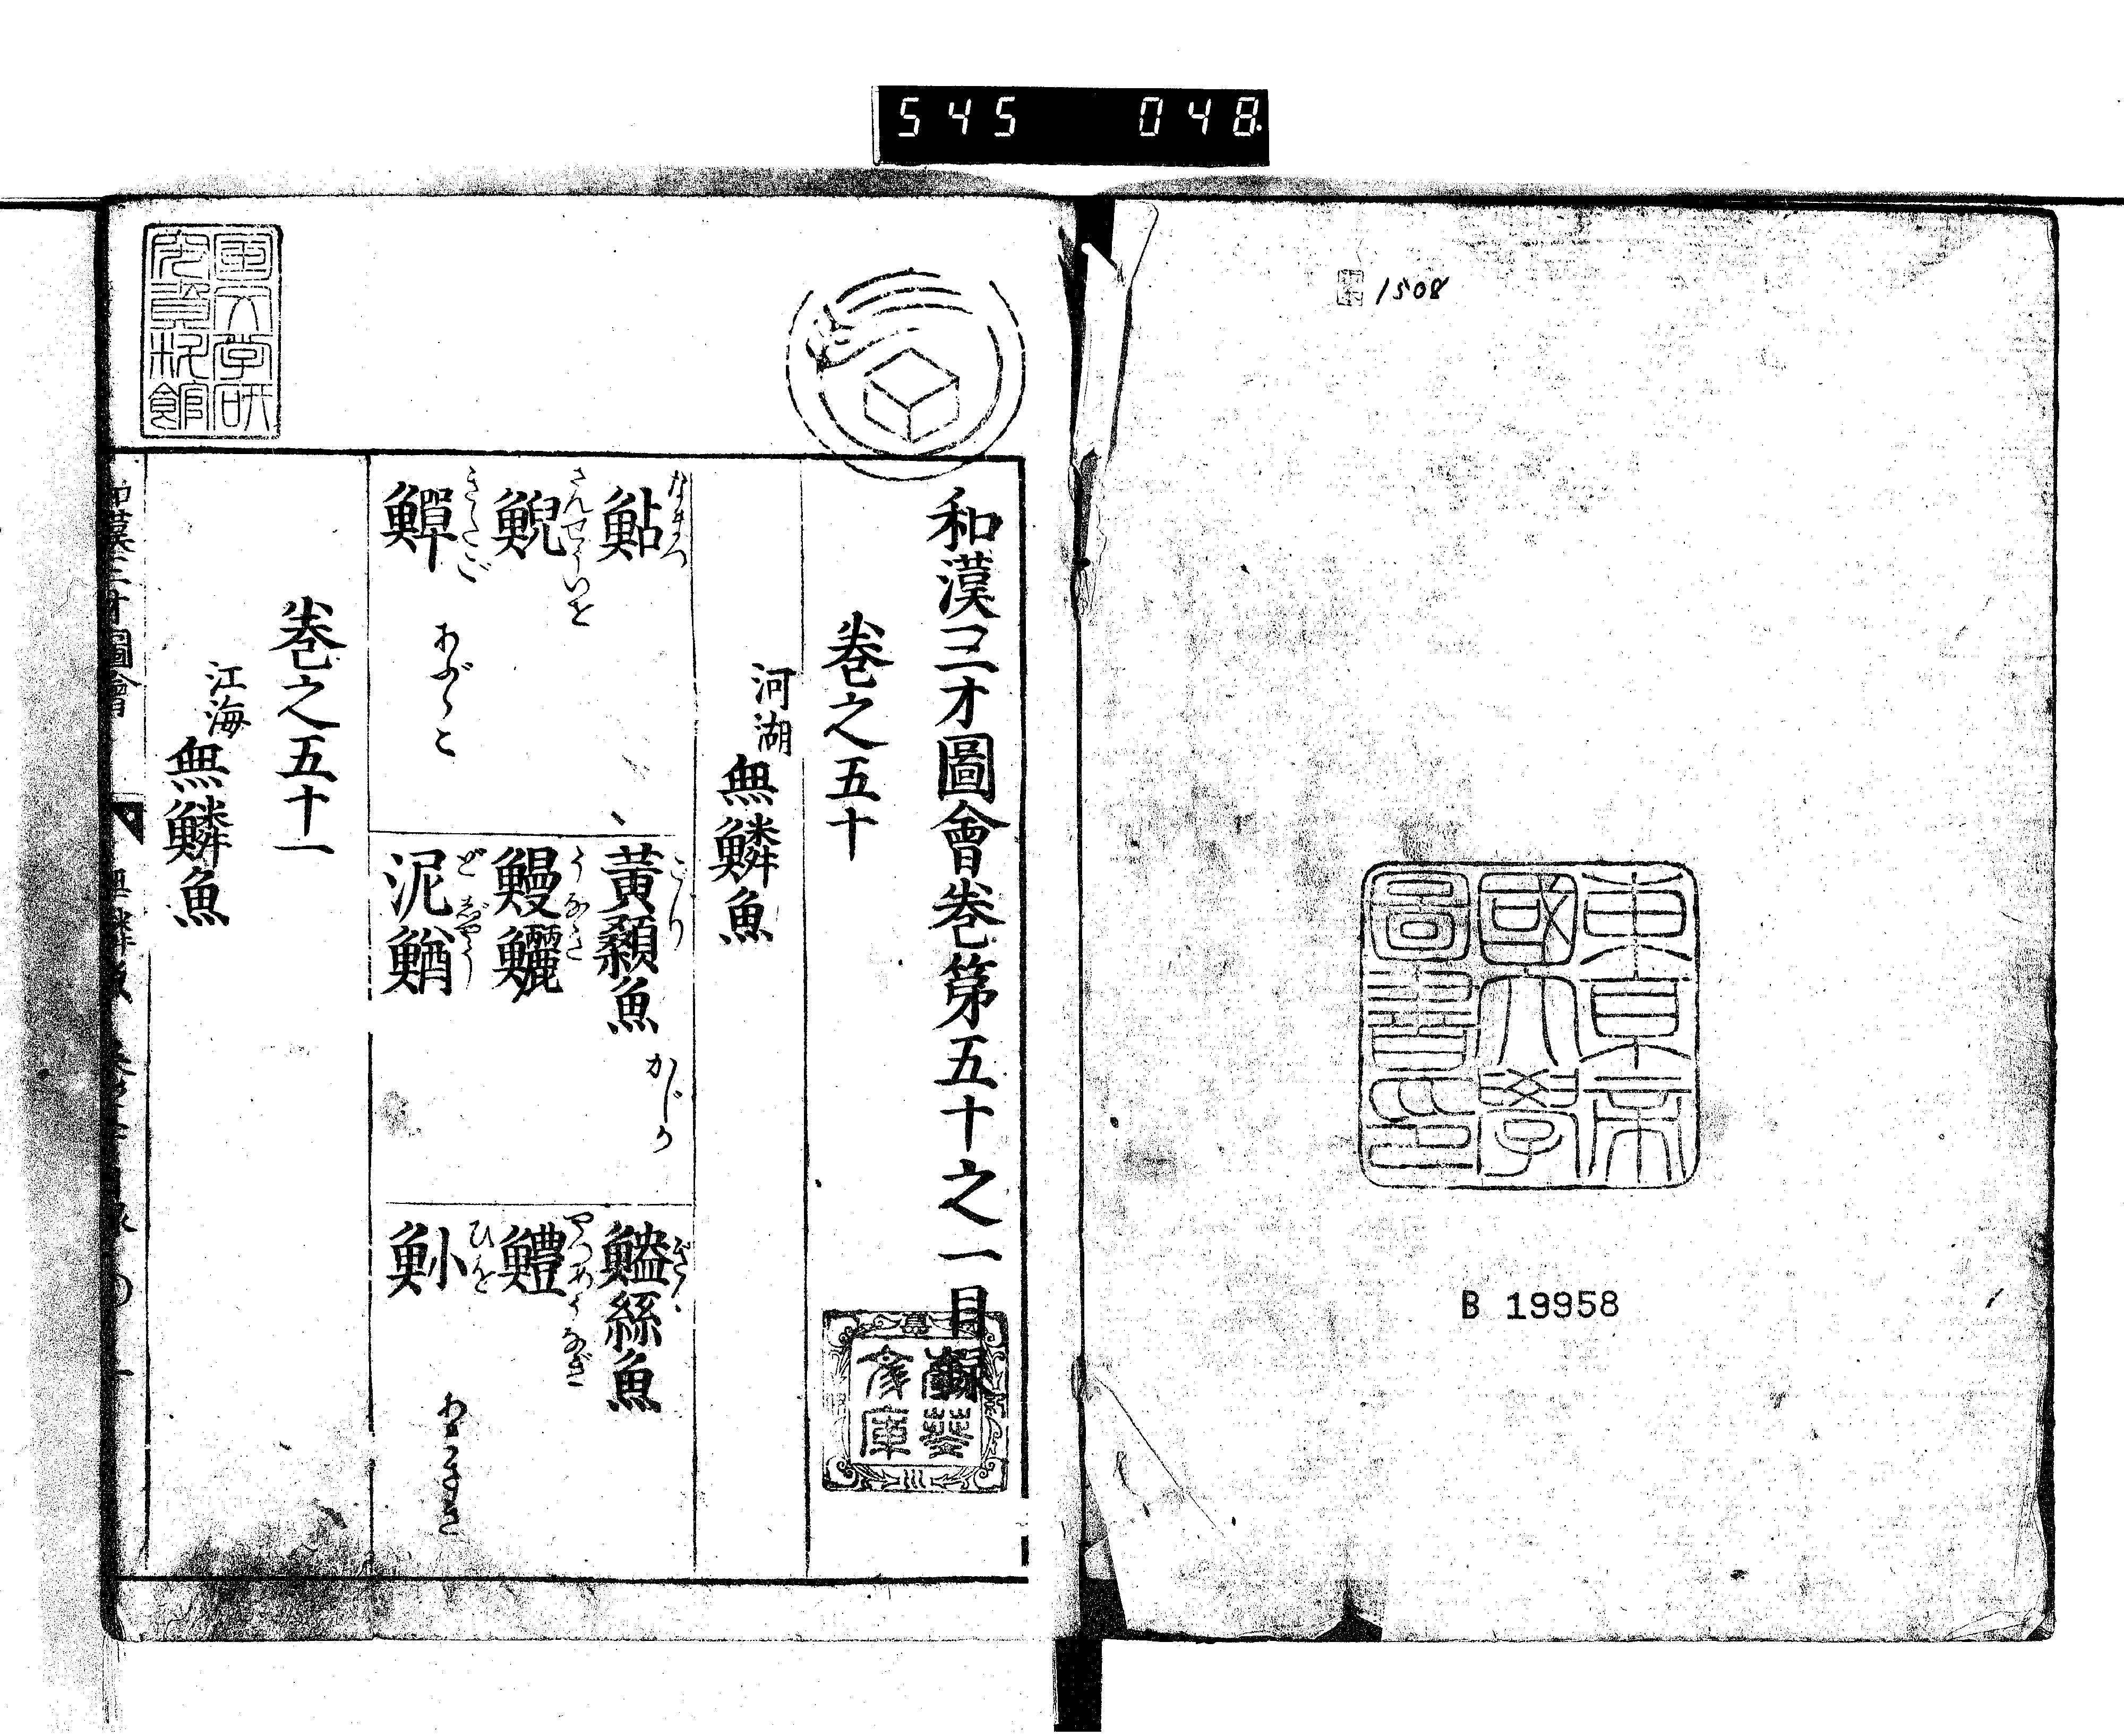 545 048
1508
東京帝
國大學
圖書印
B 19958
和漢三才圖會卷第五十之一目録
卷之五十
河湖無鱗魚
鮎 なまつ
黃顙魚 ごり かじか
鰪絲魚 ぎぎ
鯢 さんせういを
鰻鱺 うなぎ
鱧 やつめうなぎ
鱓 きたご あぶらこ
泥鰌 どぢやう
魦 ひを
卷之五十一
江海無鱗魚
和漢三才圖會
文庫